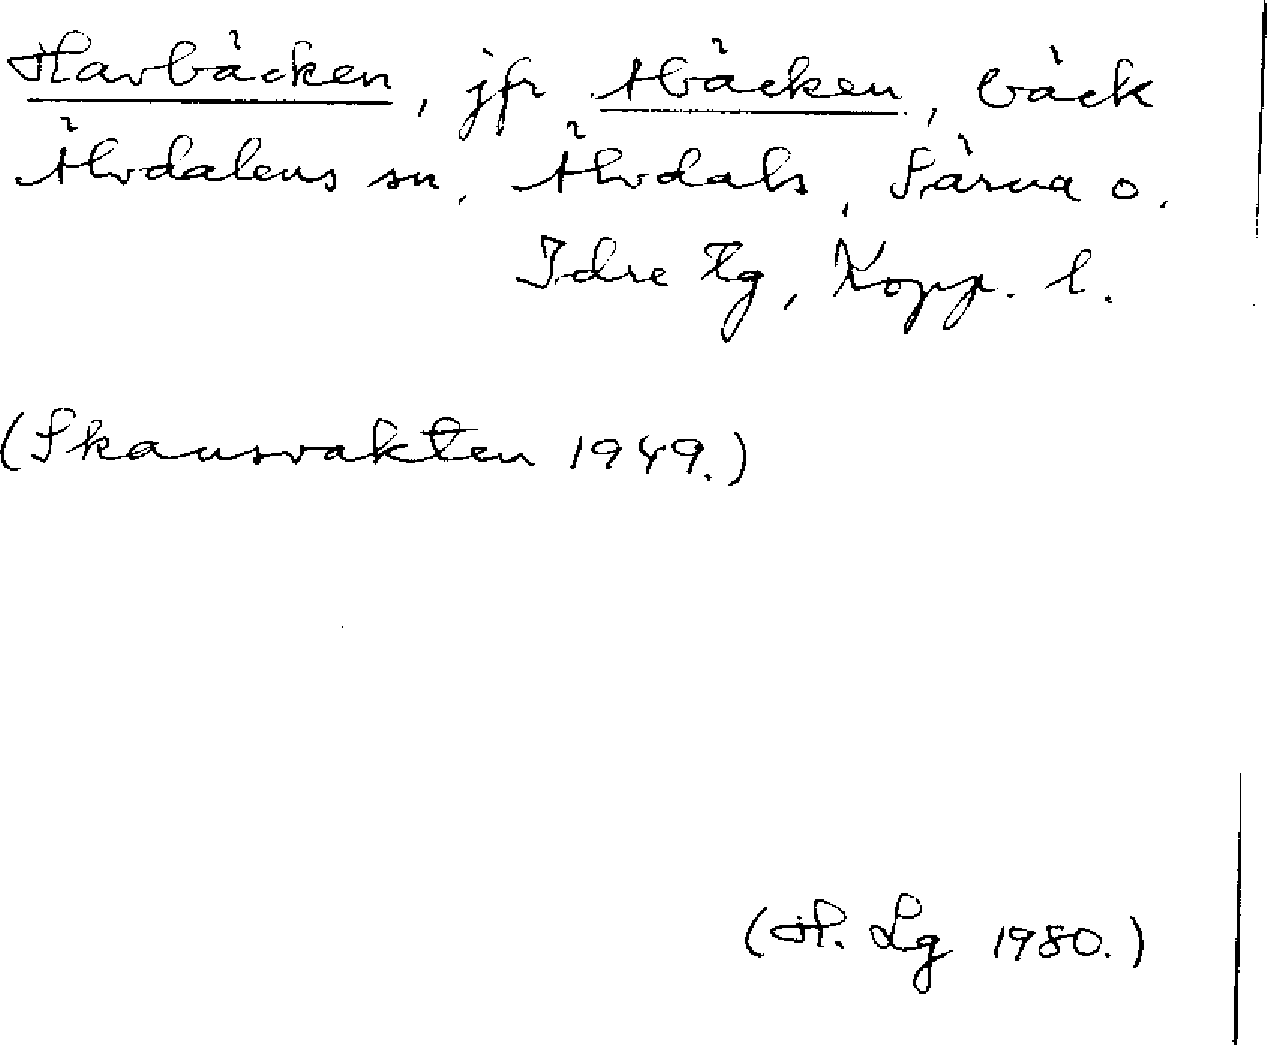 Havbäcken, jfr Abäcken, bäck
Älvdalens sn, Älvdals, Särna o.
Idre tg, Kopp. l.
(Skansvakten 1949.)
(H. Lg 1980.)